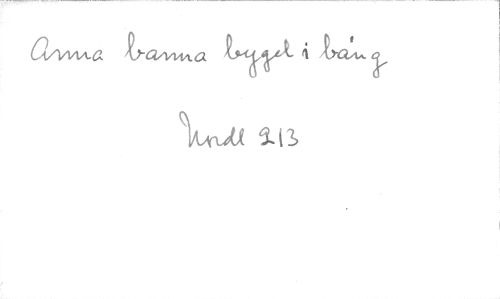 Anna banna bygel i bång
Nordl 213